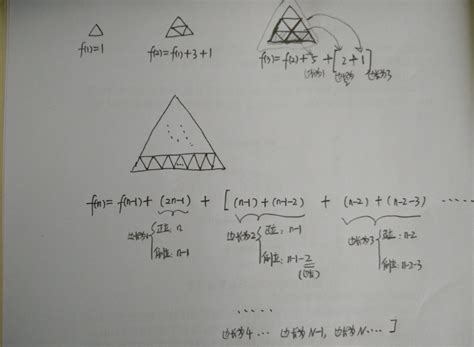 f(1)=1
f(2)=f(1)+3+1
f(3)=f(2)+5+[2+1]
边长为1 边长为2 边长为3
f(n)=f(n-1)+(2n-1)+[(n-1)+(n-1-2)+(n-2)+(n-2-3)……
边长为1 正立:n 边长为2 正立:n-1 边长为3 正立:n-2
倒立:n-1 倒立:n-1-2 倒立:n-2-3
……
边长为4… 边长为N-1, 边长为N……]